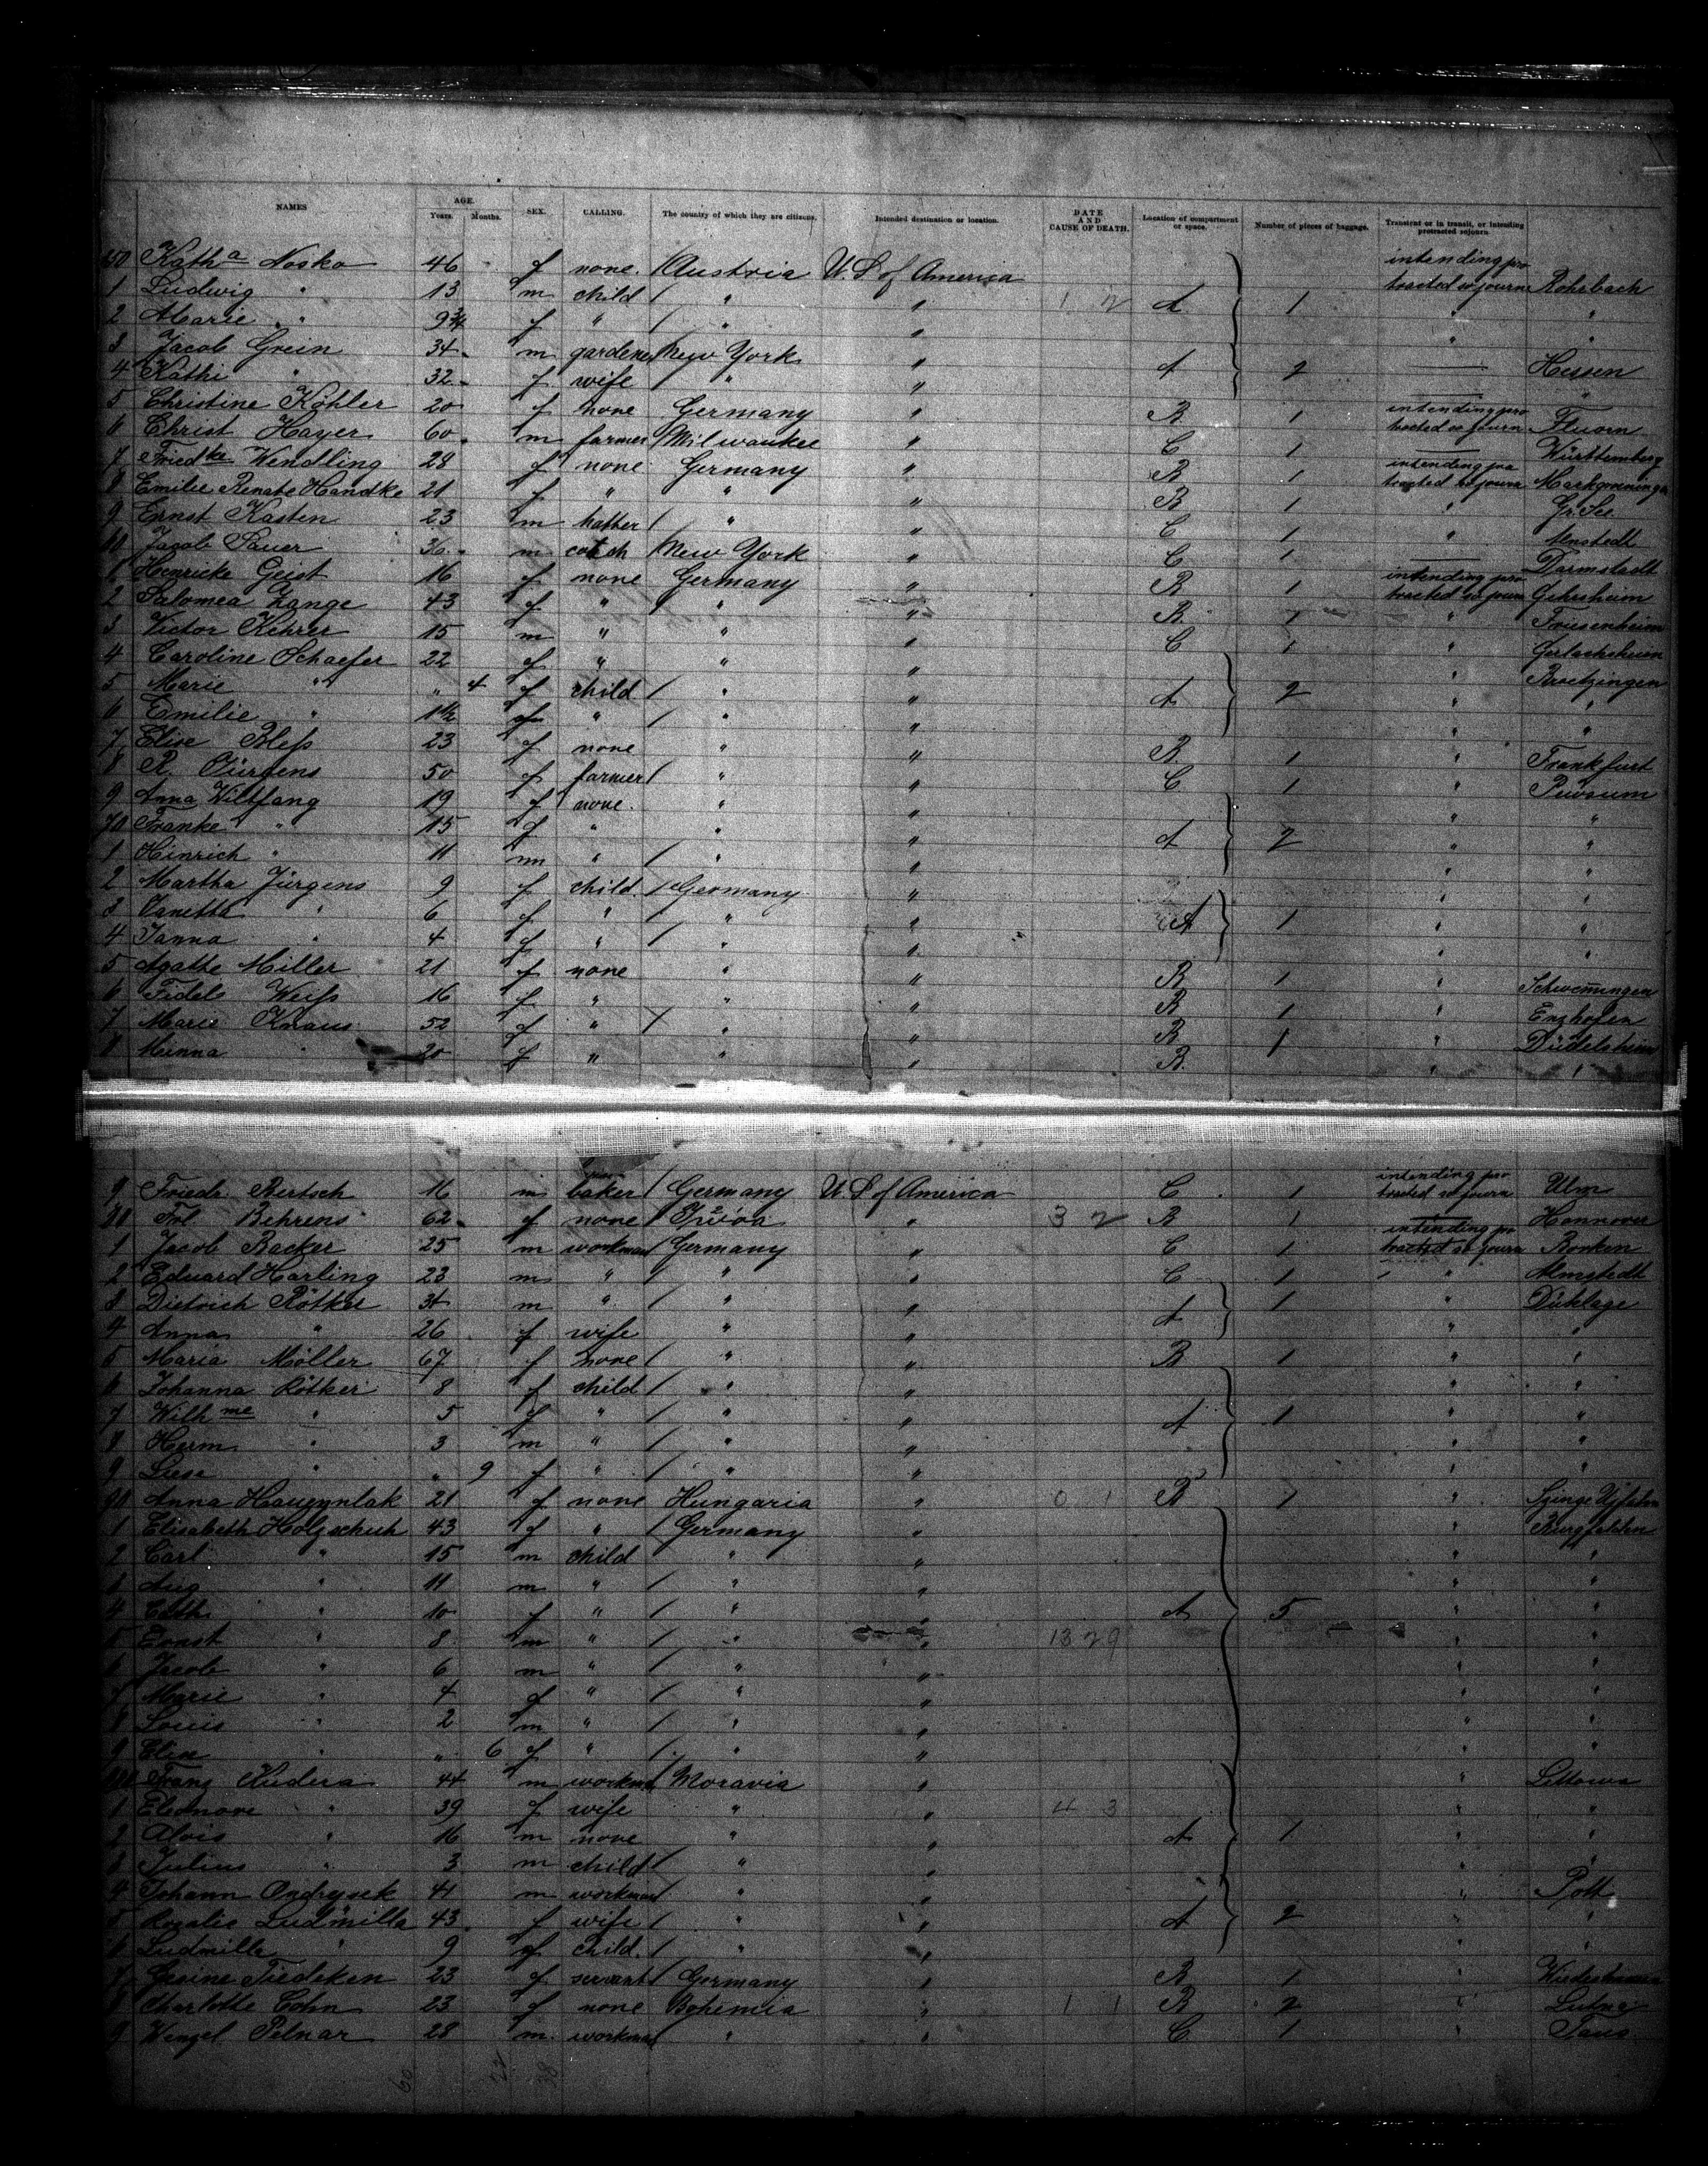 NAMES AGE. Years. Months. SEX. CALLING. The country of which they are citizens. Intended destination or location. DATE AND CAUSE OF DEATH. Location of compartment or space. Number of pieces of baggage. Transient or in transit, or intending protracted sojourn
150 Kath a Nosko 46 f none Austria U. S of America intending pro
1 Ludwig " 13 m child " " 1 2 A 1 tracted sojourn Rohrbach
2 Marie " 9 3/4 f " " " " "
3 Jacob Grein 34 m gardener New York " "
4 Kathi " 32 f wife " " A 2 Hessen
5 Christine Köhler 20 f none Germany " B 1 intending pro tracted sojourn Fluorn
6 Christ Hayer 60 m farmer Milwaukee " C 1 Württemberg
7 Friedke Wendling 28 f none Germany " B 1 intending pro tracted sojourn
8 Emilie Renate Handke 21 f " " " B 1 " Gr. See
9 Ernst Kasten 23 m hatter " " C 1 "
60 Jacob Sauer 36 m New York " C 1 Darmstadt
1 Henricke Geist 16 f none Germany " B 1 intending pro tracted sojourn
2 Salomea Zange 43 f " " " B 1 " Friesenheim
3 Victor Kehrer 15 m " " " C 1 " Gerlachsheim
4 Caroline Schaefer 22 f " " " " Broetzingen
5 Marie " " 4 f child " " A 2 " "
6 Emilie " 1 1/2 f " " " " "
7 Elise Bless 23 f none " " B 1 " Frankfurt
8 R. Jürgens 50 f farmer " " C 1 " Pewsum
9 Anna Wiltfang 19 f none " " " "
70 Franke " 15 f " " " A 2 " "
1 Hinrich " 11 m " " " " "
2 Martha Jürgens 9 f child Germany " " "
3 Janette " 6 f " " " A 1 " "
4 Janna " 4 f " " " " "
5 Agathe Miller 21 f none " " B 1 " Schwenningen
6 Fidele Weiss 16 f " " " B 1 " Enzhofen
7 Marie Knaus 52 f " " " B 1 " Düdelsheim
8 Minna " 20 f " " " B " "
9 Friedr. Bertsch 16 m baker Germany U. S of America C 1 intending pro tracted sojourn Ulm
80 Frl. Behrens 62 f none " 3 2 B 1 Hannover
1 Jacob Backer 25 m workman Germany " C 1 intending pro tracted sojourn Borken
2 Eduard Harling 23 m " " " C 1 " Almstedt
3 Dietrich Rötker 31 m " " " A 1 " Dinklage
4 Anna " 26 f wife " " " "
5 Maria Möller 67 f none " " B 1 " "
6 Johanna Rötker 8 f child " " " "
7 Wilh me " 5 f " " " A 1 " "
8 Herm. " 3 m " " " " "
9 Liese " " 9 f " " " " "
90 Anna 21 f none Hungaria " 0 1 B 1 "
1 Elisabeth Holzschuh 43 f " Germany " " Burgfelden
2 Carl " 15 m child " " " "
3 Aug " 11 m " " " " "
4 Cath " 10 f " " " A 5 " "
5 Ernst " 8 m " " " 13 29 " "
6 Jacob " 6 m " " " " "
7 Marie " 4 f " " " " "
8 Louis " 2 m " " " " "
9 Elise " " 6 f " " " " "
200 Franz Kudera 44 m workman Moravia " "
1 Eleonore " 39 f wife " " 4 3 " "
2 Alois " 16 m none " " A 1 " "
3 Julius " 3 m child " " " "
4 Johann Ondrejsek 41 m workman " " "
5 Rosalie Ludmilla 43 f wife " " A 2 " "
6 Ludmilla " 9 f child " " " "
7 Gesine Tiedeken 23 f servant Germany " B 1 "
8 Charlotte Cohn 23 f none Bohemia " 1 1 B 2 "
9 Wenzel Pelnar 28 m workman " " C 1 " Taus
60 22 38